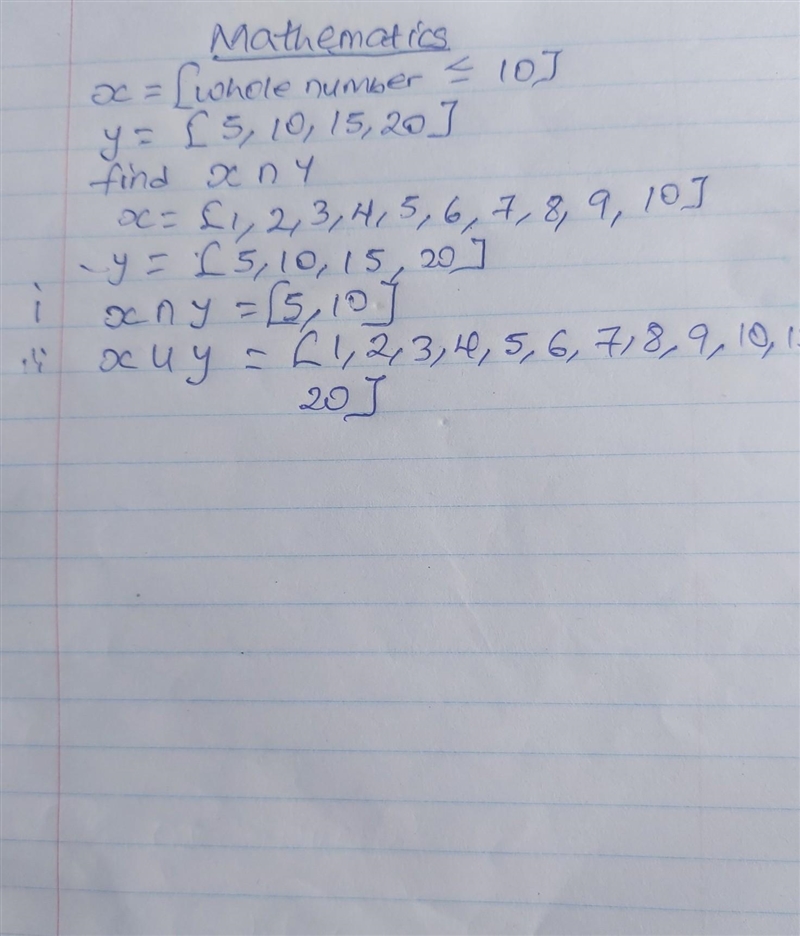 Mathematics
x = [whole number ≤ 10]
y = [5, 10, 15, 20]
find x ∩ y
x = [1, 2, 3, 4, 5, 6, 7, 8, 9, 10]
y = [5, 10, 15, 20]
i x ∩ y = [5, 10]
ii x ∪ y = [1, 2, 3, 4, 5, 6, 7, 8, 9, 10,
20]